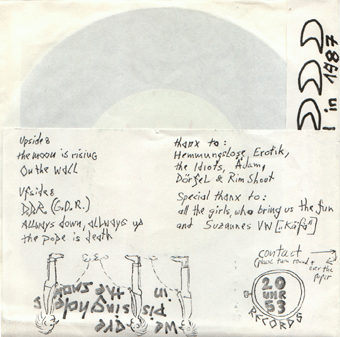 DDD
! in 1987
Upside:
the moon is rising
On the Wall
Upside:
DDR (G.D.R.)
Always down, always up
the pope is death
thanx to:
Hemmungslose Erotik,
the Idiots, Adam,
Dörfel & Rim Shoot
Special thanx to:
all the girls, who bring us the fun
and Suzannes VW ["Käfa"]
contact
(please turn round +
over the
paper
20
UHR
53
RECORDS
We are
pissing hole
in the snow